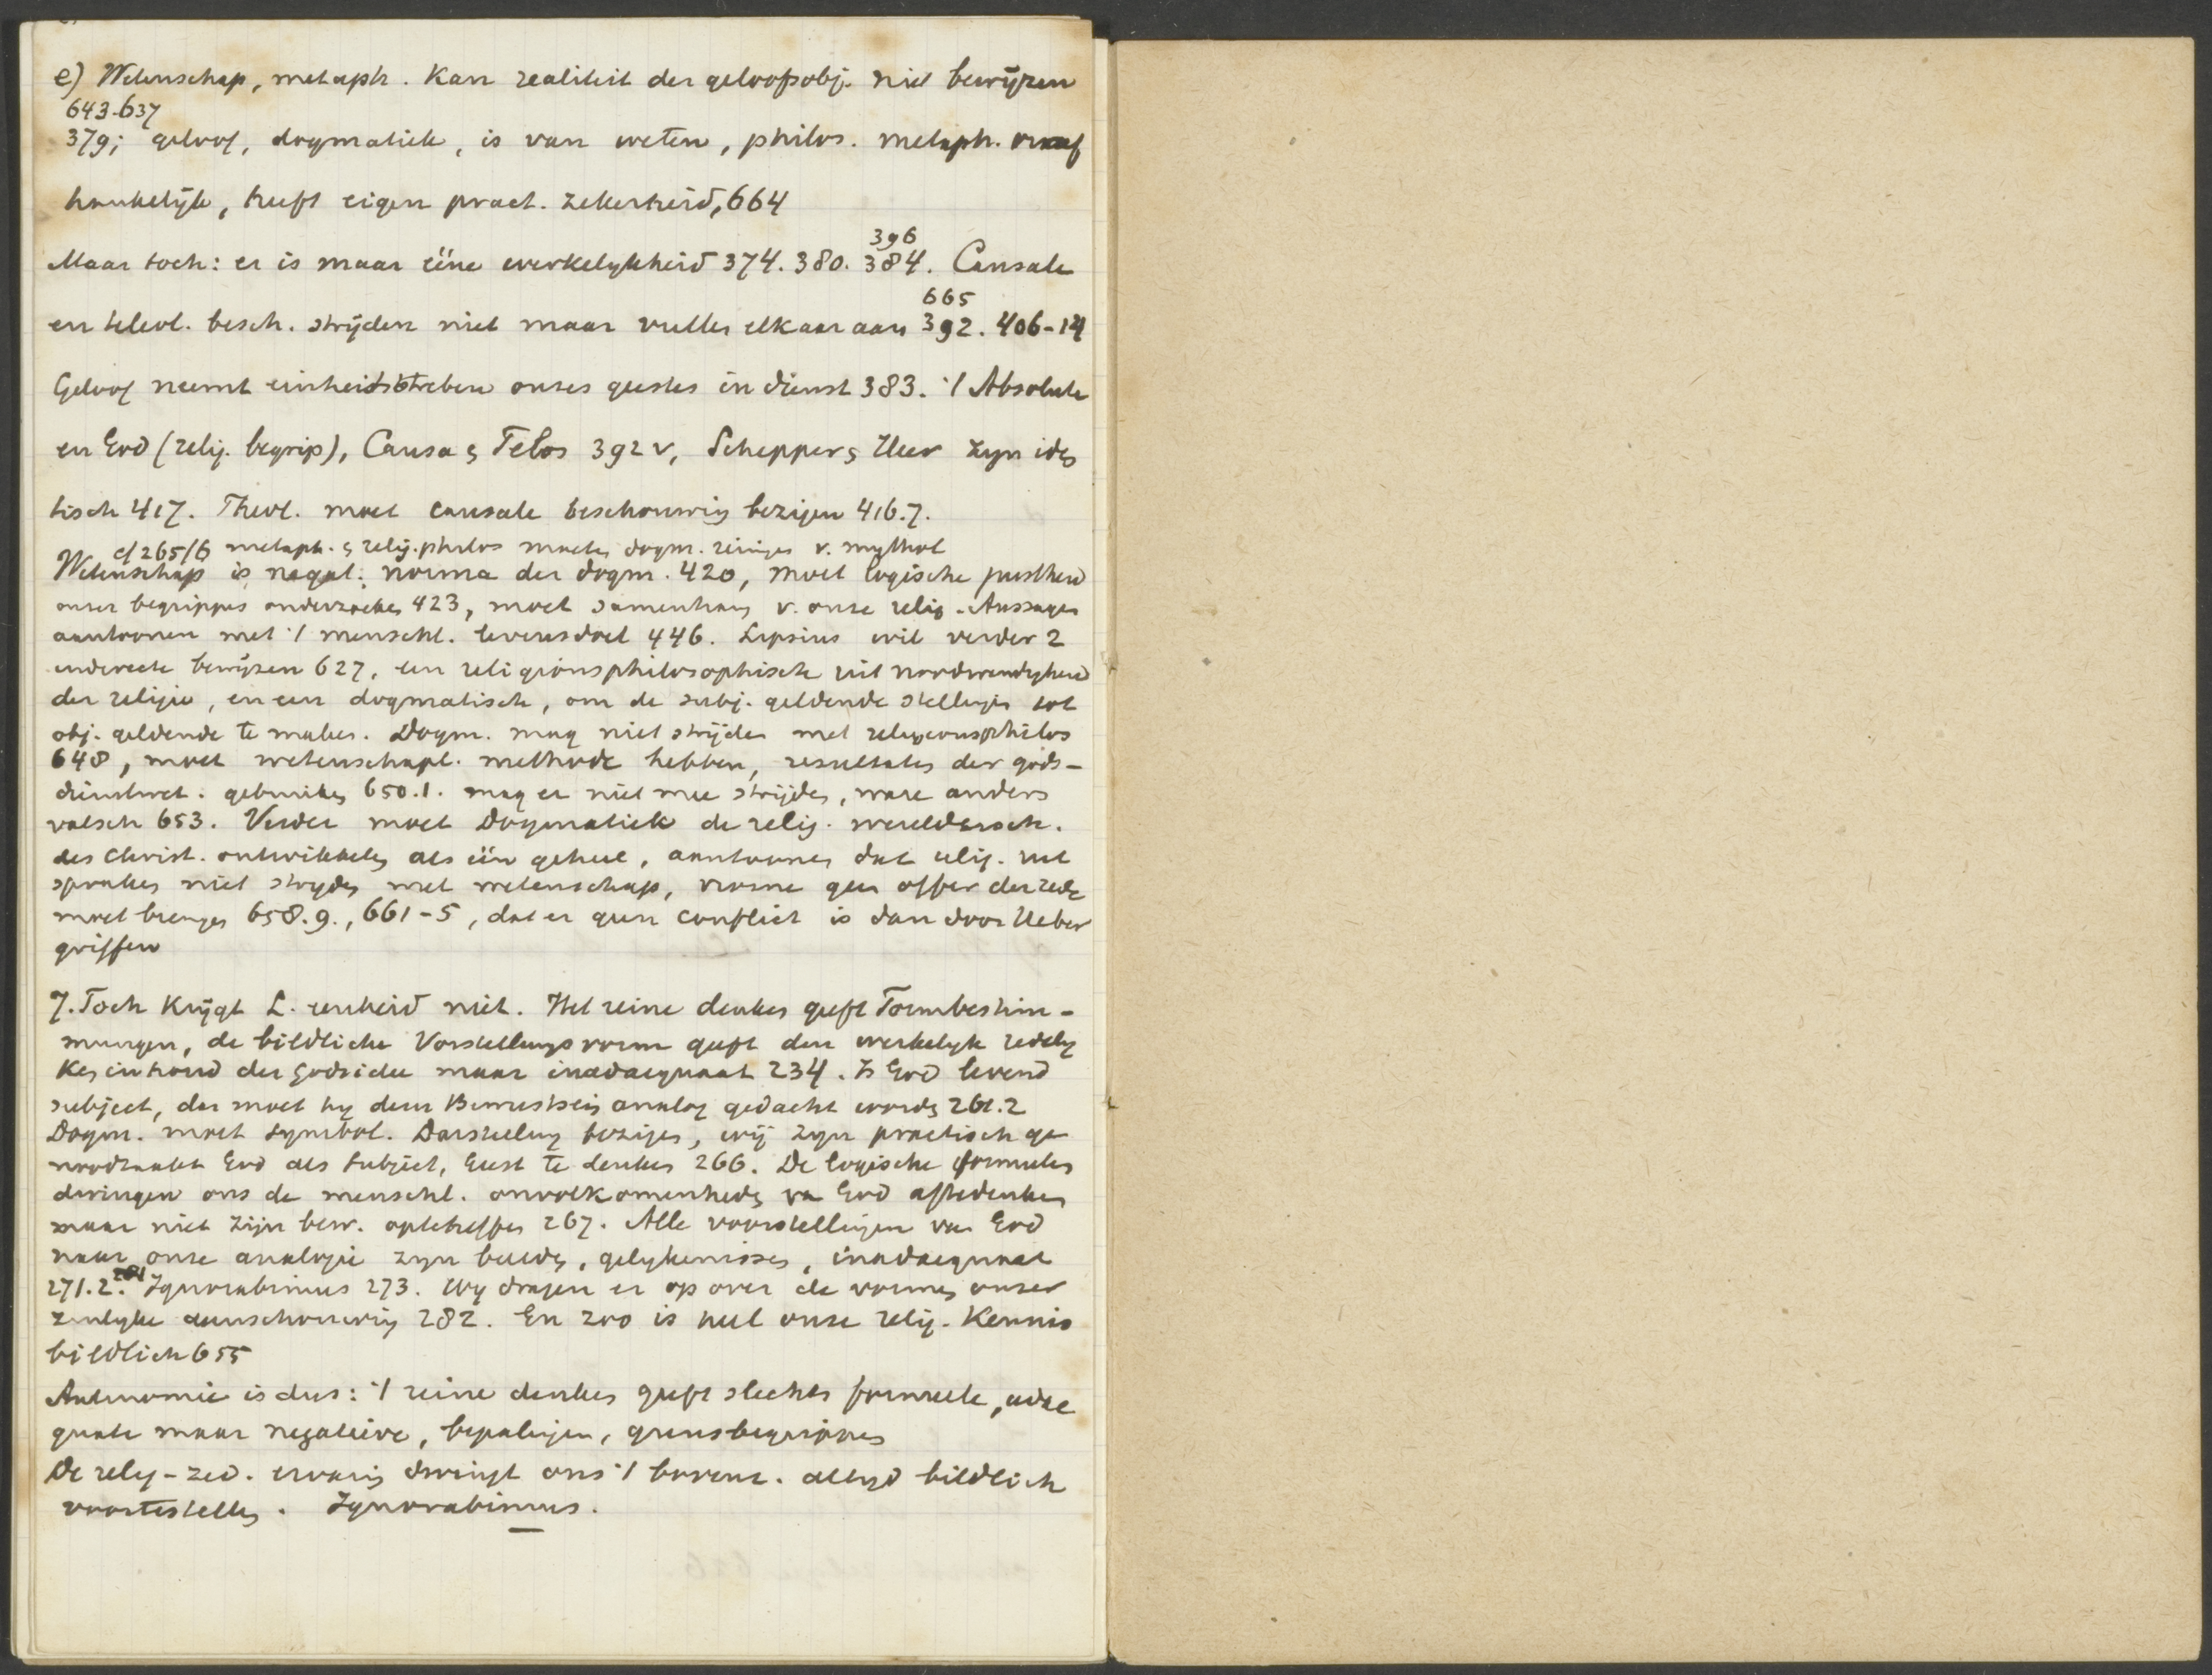 e) Wetenschap, metaph. kan realiteit der geloofsobj. niet bewijzen
643-637
379; geloof, dogmatiek, is van weten, philos. metaph. onaf
hankelijk, heeft eigen pract. zekerheid, 664
396
Maar toch: er is maar ééne werkelykheid 374. 380. 384. Causale
665
en teleol. besch. strijden niet maar vullen elkaar aan 392. 406-14
Geloof neemt einheitsstreben onzes geestes in dienst 383. 't Absolute
en God (relig. begrip), Causa en Telos 392 v, Schepper en Heer zyn iden
tisch 417. Theol. moet causale beschouwing bezigen 416.7.
cf 265/6 metaph. en relig. philos moeten dogm. reinigen v. mythol
Wetenschap is negat. norma der dogm. 420, moet logische juistheid
onzer begrippen onderzoeken 423, moet samenhang v. onze relig. Aussagen
aantoonen met 't menschl. levensdoel 446. Lipsius wil verder 2
indirecte bewijzen 627, een religionsphilosophische uit noodwendigheid
der religie, en een dogmatisch, om de subj. geldende stellingen tot
obj. geldende te maken. Dogm. mag niet strijden met religionsphilos
648, moet wetenschapl. methode hebben, resultaten der gods-
dienstwet. gebruiken 650.1. mag er niet mee strijden, ware anders
valsch 653. Verder moet Dogmatiek de relig. wereldbesch.
des Christ. ontwikkelen als één geheel, aantoonen dat relig. uit
spraken niet stryden met wetenschap, vrome geen offer der rede
moet brengen 658.9., 661-5, dat er geen conflict is dan door Ueber
griffen
7. Toch krijgt L. eenheid niet. Het reine denken geeft Formbestim-
mungen, de bildliche Vorstellungsvorm geeft den werkelyk redely
ken inhoud der godsidee maar inadaequaat 234. Is God levend
subject, dan moet hy dem Bewustsein analog gedacht worden 261.2
Dogm. moet symbol. Darstellung bezigen, wij zyn practisch ge
noodzaakt God als subject, Geest te denken 266. De logische formules
dwingen ons de menschl. onvolkomenheden van God aftedenken
maar niet zijn bew. opteheffen 267. Alle voorstellingen van God
naar onze analogie zyn beelden, gelykenissen, inadaequaat
281
271.2. Ignorabimus 273. Wy dragen er op over de vormen onzer
zinlyke aanschouwing 282. En zoo is heel onze relig. kennis
bildlich 655
Antinomie is dus: 't reine denken geeft slechts formeele, adae
quate maar negatieve, bepalingen, grensbegrippen
De relig-zed. ervaring dwingt ons 't bovenz. altyd bildlich
voortestellen. Ignorabimus.